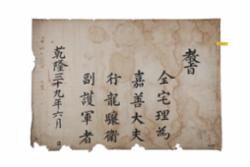 教旨
金宅理為
嘉善大夫
行龍驤衛
副護軍者
乾隆三十九年六月　日